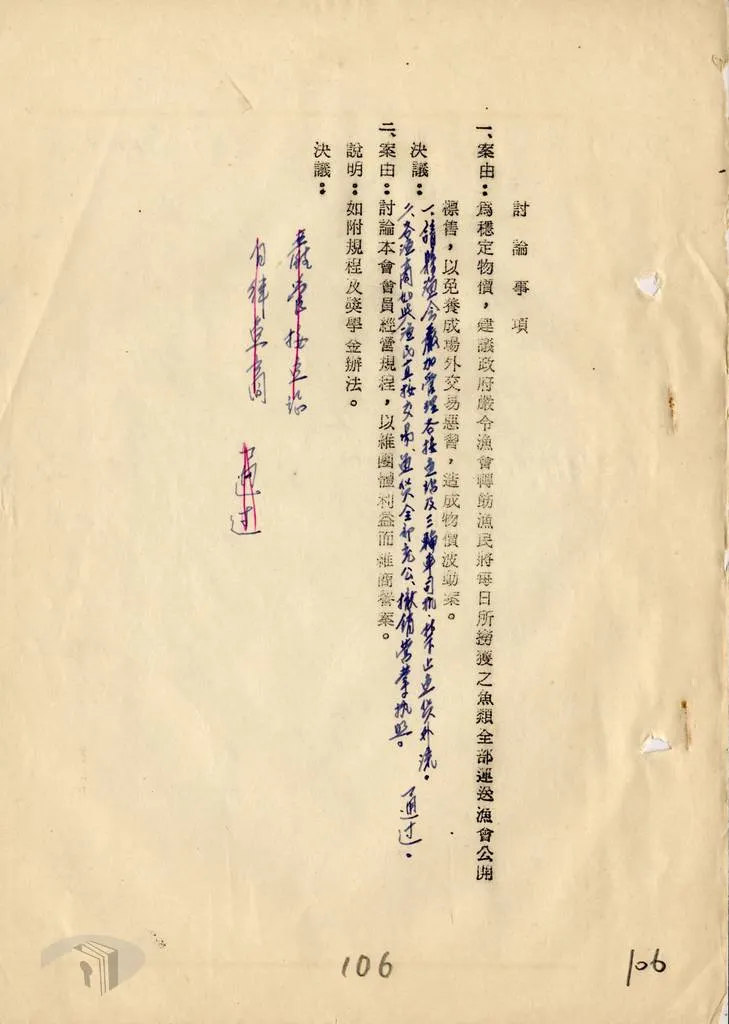 討論事項
一、案由：為穩定物價，建議政府嚴令漁會轉飭漁民將每日所撈獲之魚類全部運送漁會公開
標售，以免養成場外交易惡習，造成物價波動案。
決議：一、請縣漁會嚴加管理各接魚站及三輪車司機，禁止魚貨外流。
2、各漁商如與漁民直接交易，魚貨全部充公，撤銷營業執照。 通过。
二、案由：討論本會會員經營規程，以維團體利益而維商譽案。
說明：如附規程及獎學金辦法。
決議：
管接魚站
魚商 通过
106
106